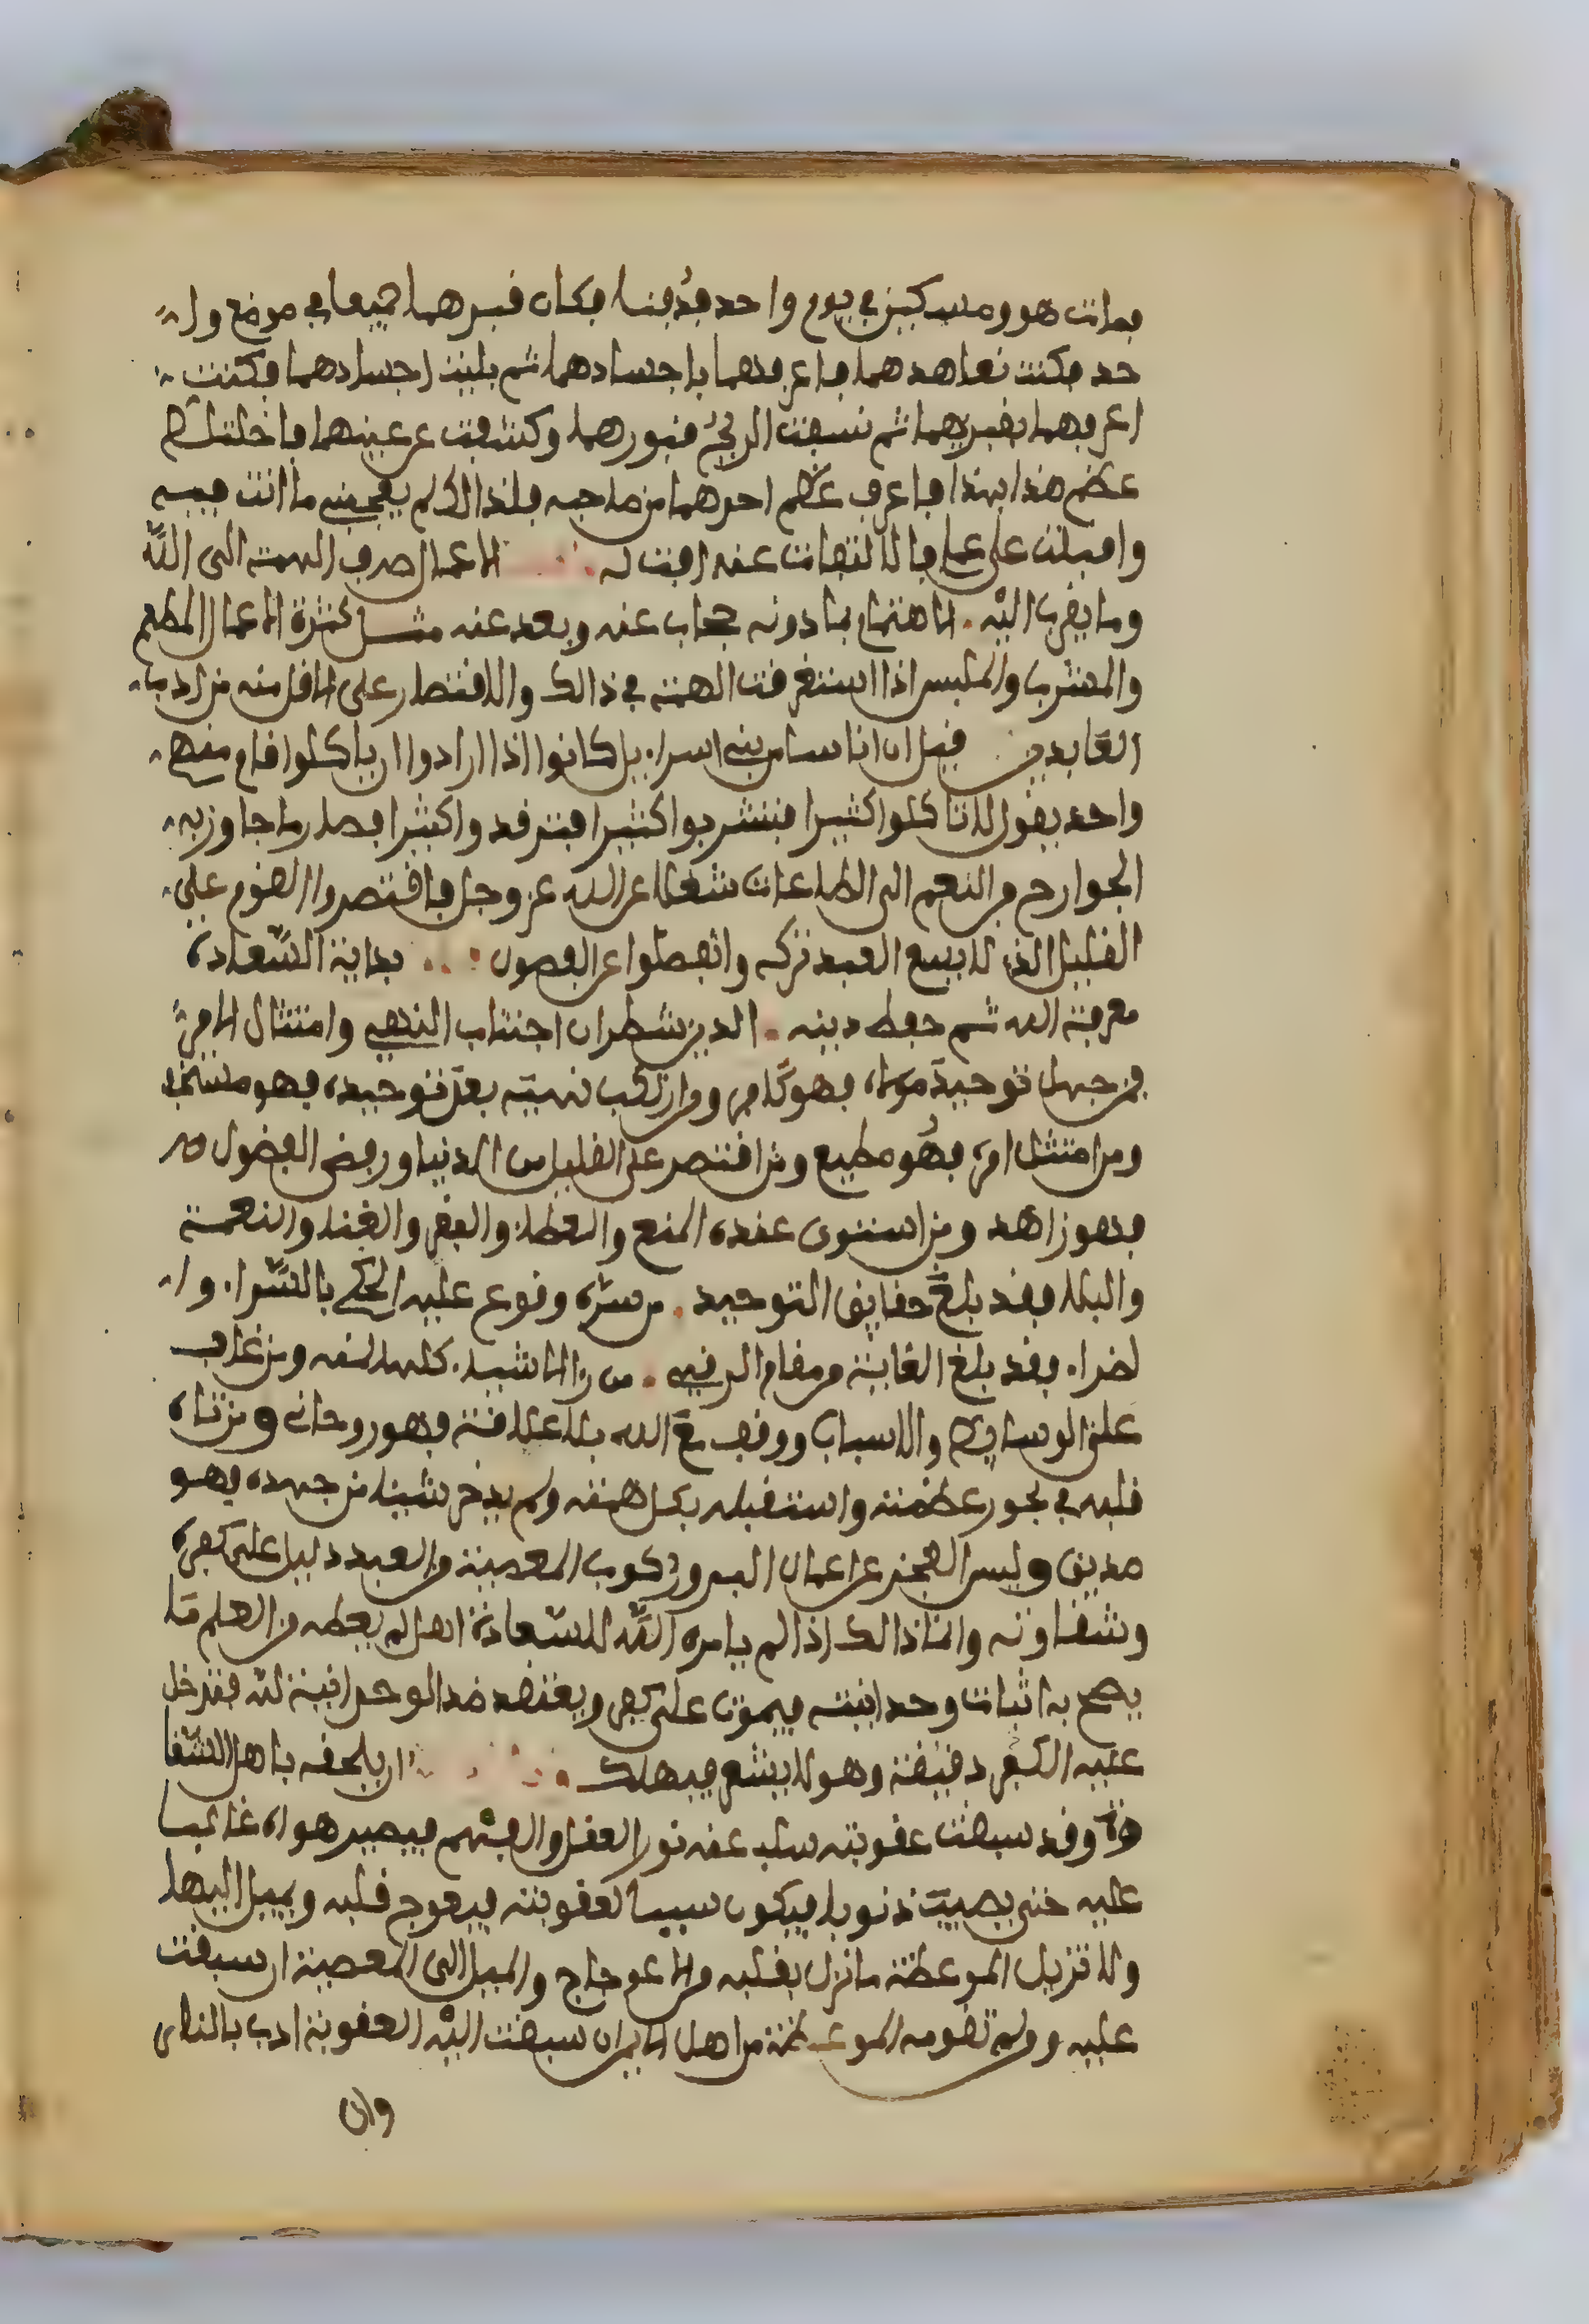 فمات هو ومسكين في يوم واحد فدفنا فكان قبرهما جميعا في موضع وا
حد فكنت نعاهدهما فاعرفهما باجسادهما ثم بليت اجسادهما فكنت
اعرفهما بقبريهما ثم نسفت الريح قبورهما وكشفت عن عينهما فاختلط
عظم هذا بهذا فما اعرف عظم احدهما من صاحبه فلذالك لم يعجبني ما انت فيه
واقبلت على عملي فالالتفات عنه افت له الاعمال صرف الهمة الى الله
وما يقرب اليه. الاهتمام بما دونه حجاب عنه وبعد عنه مثل كثرة الاعمال المطعم
والمشرب والملبس اذا استغرقت الهمة في ذالك والاقتصار على الاقل منه من ادب
العابدين قيل ان اناسا من بني اسراءيل كانوا اذا ارادوا ان ياكلوا قام منهم
واحد يقول لا تاكلوا كثيرا فتشربوا كثيرا فترقدوا كثيرا فصار ما جاوز به
الجوارح من النعم الى الطاعات شغلا عن الله عز وجل فاقتصروا القوم على
القليل الذي لا يسع العبد تركه وانفصلوا عن الفصول بداية السعادة
معرفة الله ثم حفظ دينه. الدين شطران اجتناب النهي وامتثال الامر
فمن جهل توحيد مولاه فهو كافر ومن ارتكب نهيه بعد توحيده فهو مستخف
ومن امتثل امره فهو مطيع ومن اقتصر على القليل من الدنيا ورفض الفضول
فهو زاهد ومن استوى عنده المنع والعطاء والفقر والغنا والنعمة
والبلا فقد بلغ حقايق التوحيد. من سره وقوع عليه الحكم بالسرا. وا
لضرا. فقد بلغ الغاية من مقام الرضى. من را الاشيا. كلها لله ومن غاب
على الوسايط والاسباب ووقف مع الله بلا علاقة فهو روحاني ومن تاه
قلبه في بحور عظمته واستقبله بكل همته ولم يدخر شيئا من جهده فهو
صديق وليس العجز عن اعمال البر وركوب المعصية من العبد دليل على كفره
وشقاوته وانما ذالك اذا لم يامره الله للسعادة اهل لم يعطه من العلم ما
يصح به اثبات وحدانيته فيموت على كفر ويعتقد ضد الوحدانية لله فتدخل
عليه الكفر دقيقة وهو لا يشعر فيهلك ان يلحقه باهل الشقا
وة وقد سبقت عقوبته سلب عنه نور العقل والفهم فيصير هواه غالبا
عليه حتى يصيب ذنوبا فيكون سببا لعقوبته فيعوج قلبه ويميل اليها
ولا تزيل الموعظة ما نزل بقلبه من الاعوجاج والميل الى المعصية ان سبقت
عليه وولم تقومه الموعظة من اهل الايمان سبقت اليه العقوبة ادب بالنار
وان